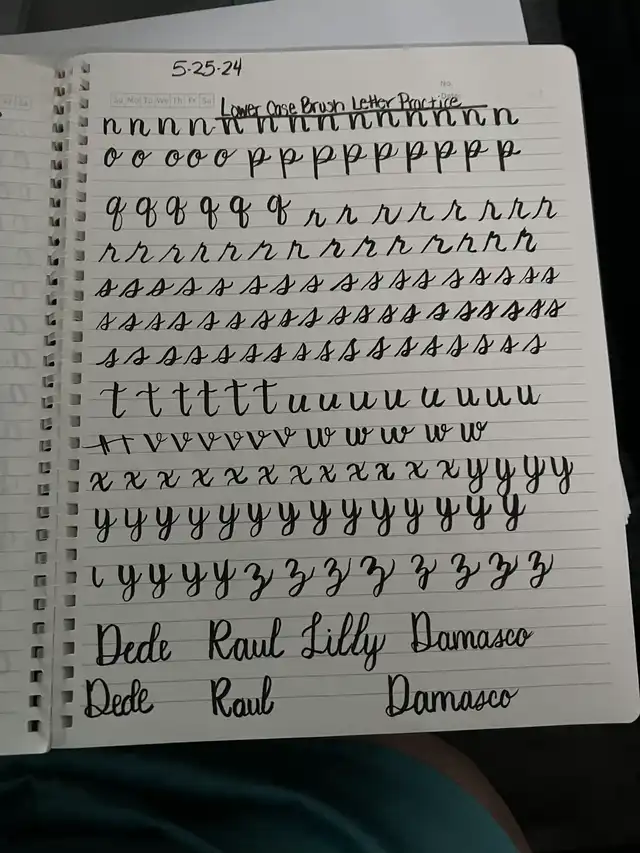 5-25-24
Su Mo Tu We Th Fr Sa
Lower Case Brush Letter Practice
n n n n n n n n n n n n n n
o o o o o p p p p p p p p p
q q q q q q r r r r r r r r
r r r r r r r r r r r r r r
s s s s s s s s s s s s s s s s
s s s s s s s s s s s s s s s s s
s s s s s s s s s s s s s s s s
t t t t t t u u u u u u u u
v v v v v v w w w w w
x x x x x x x x x x x x y y y y
y y y y y y y y y y y y y y
y y y y z z z z z z z z
Dede Raul Lilly Damasco
Dede Raul Damasco